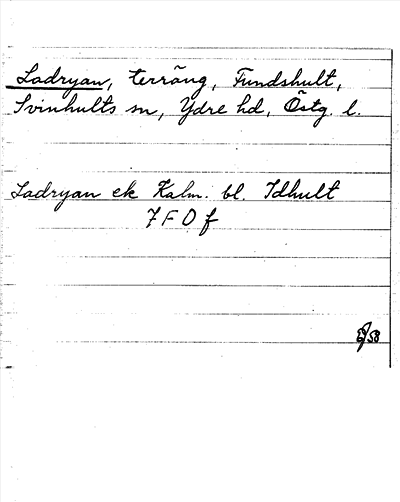 Ladryan, terräng, Fundshult,
Svinhults sn, Ydre hd, Östg. l.
Ladryan ek Kalm. bl. Idhult
7 F 0 f
58